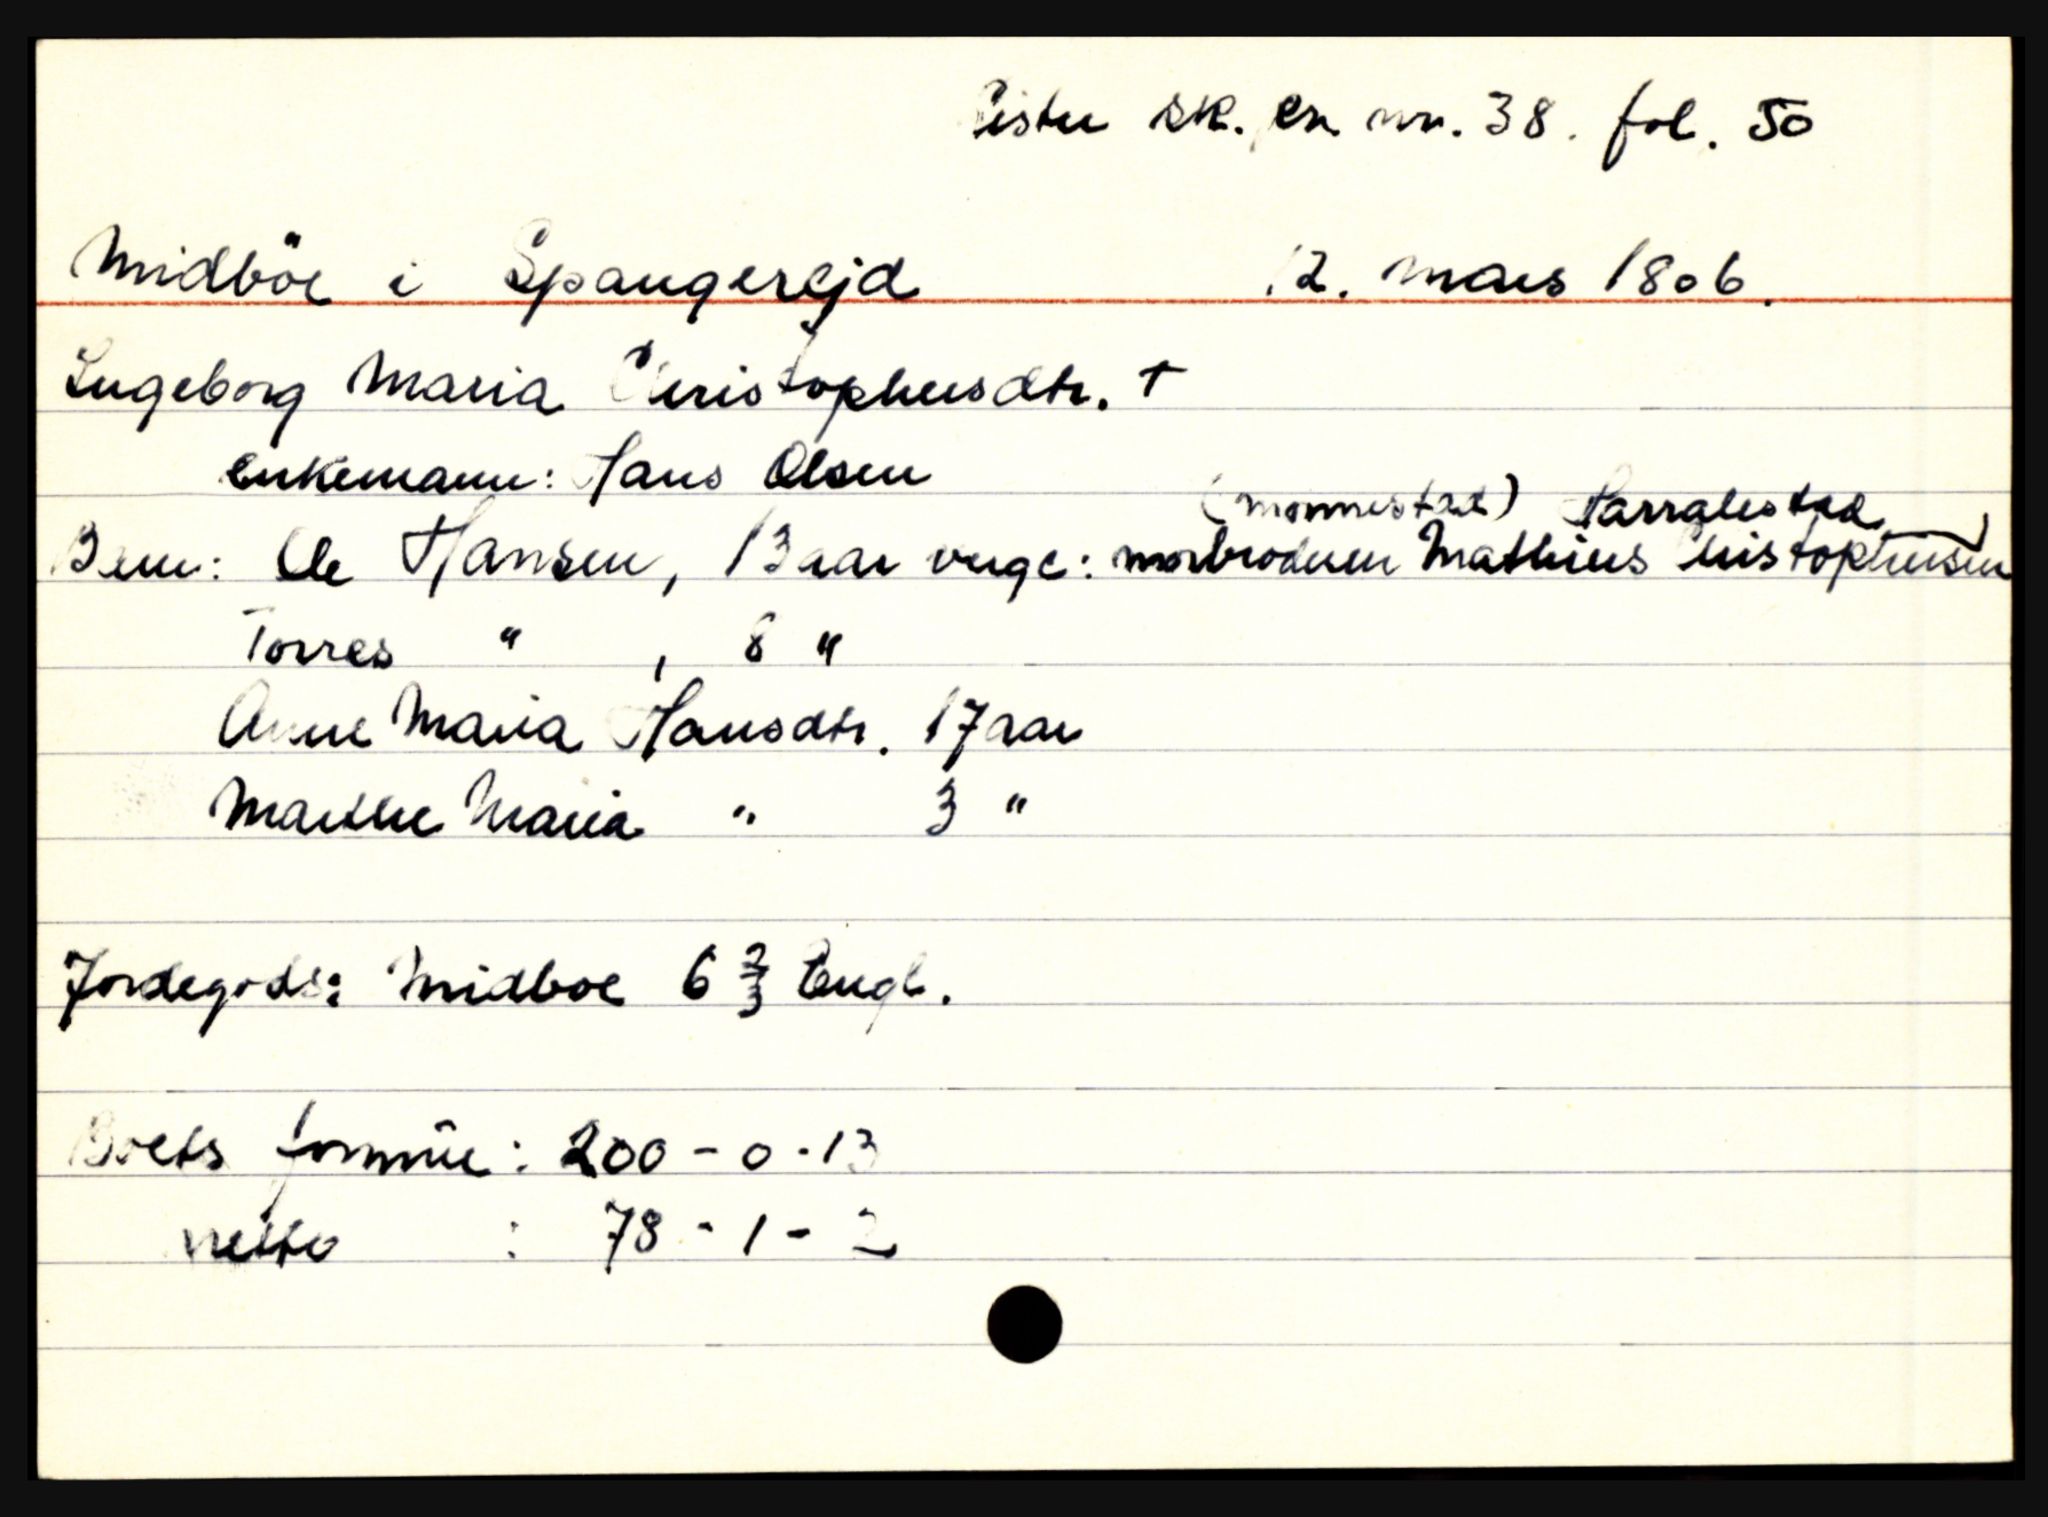 Lister sk. pr. nr. 38. fol. 50
Midböe i Spangerejd 12. mars 1806.
Ingeborg Maria Christophersdtr. +
enkemann: Hans Olsen
(monnestad) Harralestad
Børn: Ole Hansen, 13 aar verge: morbroderen Mathias Christophersen
Torres " , 8 "
Anne Maria Hansdtr. 17 aar
Marthe Maria " 3 "
Jordegods: Midboe 6 2/3 Engl.
Boets formüe: 200 - 0 - 13
netto : 78 - 1 - 2